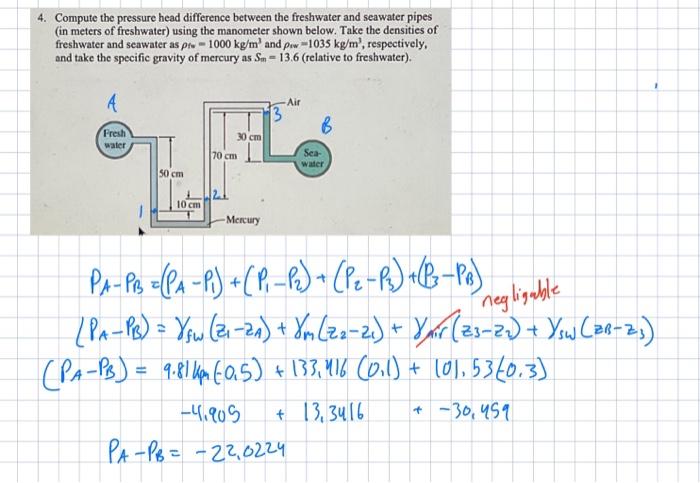 4. Compute the pressure head difference between the freshwater and seawater pipes
(in meters of freshwater) using the manometer shown below. Take the densities of
freshwater and seawater as ρfw = 1000 kg/m³ and ρsw =1035 kg/m³, respectively,
and take the specific gravity of mercury as Sm = 13.6 (relative to freshwater).
A
Air
3
B
Fresh
water
30 cm
70 cm
Sea-
water
50 cm
2
10 cm
1
Mercury
PA-PB =(PA-P1) + (P1-P2) + (P2-P3) + (P3-PB)
negligable
(PA-PB) = γfw (z1-zA) + γm (z2-z1) + γair (z3-z2) + γsw (zB-z3)
(PA-PB) = 9.81 (-0,5) + 133,416 (0,1) + 101,53(-0.3)
-4,905 + 13,3416 + -30,459
PA-PB = -22,0224